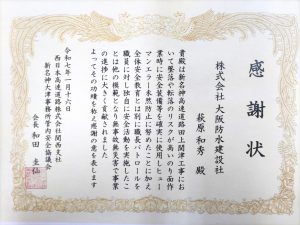 感謝状
株式会社大阪防水建設社
萩原和秀 殿
貴殿は新名神高速道路田上関津工事にお
いて墜落や転落のリスクが高いのり面作
業時に安全装備等を確実に使用しヒュー
マンエラー未然防止に努めたことに加え
全体安全教育とは別に職長パトロールを
職員に対し独自に安全活動を実施したこ
とは他の模範となり無事故無災害で事業
の進捗に大きく貢献されました
よってその功績を称え感謝の意を表します
令和七年一月十六日
西日本高速道路株式会社関西支社
新名神大津事務所管内安全協議会
会長 和田 圭仙